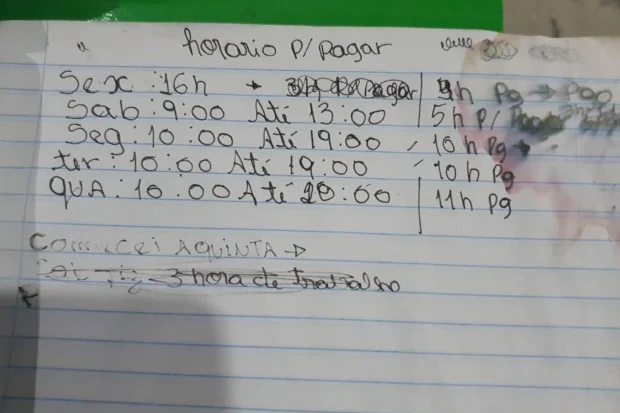 horario p/ pagar
Sex : 16h → 9h Pg → Pgo
Sab : 9:00 Até 13:00 5h P/
Seg : 10:00 Até 19:00 10h Pg
ter : 10:00 Até 19:00 10h Pg
QUA : 10:00 Até 20:00 11h Pg
Comecei AQUINTA →
3 hora de trabalho